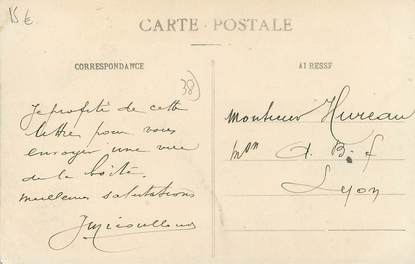 15 €
CARTE POSTALE
CORRESPONDANCE
ADRESSE
38
Je profite de cette
lettre pour vous
envoyer une vue
de la boîte.
meilleures salutations
Monsieur Hureau
mon A. B. f
Lyon